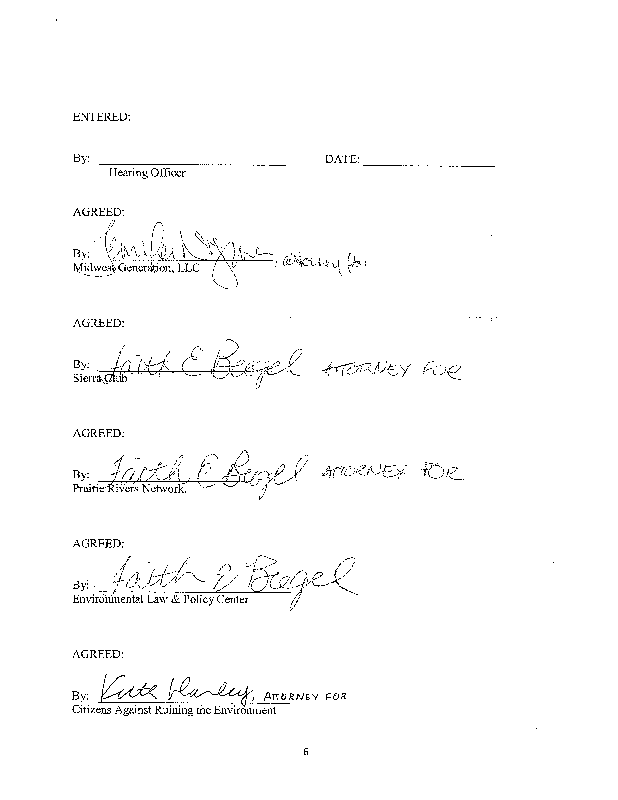 ENTERED:
By: DATE:
Hearing Officer
AGREED:
By: , attorney for
Midwest Generation, LLC
AGREED:
By: Faith E Bugel ATTORNEY FOR
Sierra Club
AGREED:
By: Faith E Bugel ATTORNEY FOR
Prairie Rivers Network
AGREED:
By: Faith E Bugel
Environmental Law & Policy Center
AGREED:
By: Keith Harley, ATTORNEY FOR
Citizens Against Ruining the Environment
6